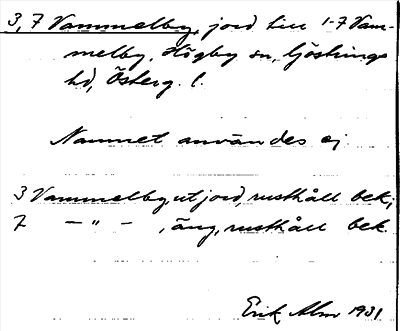 3,7 Vammelby, jord till 1-7 Vam-
melby, Högby sn, Göstrings
hd, Österg. l.
Namnet användes ej
3 Vammelby, utjord, rusthåll bek;
7 — " — , äng, rusthåll bek.
Erik Alm 1931